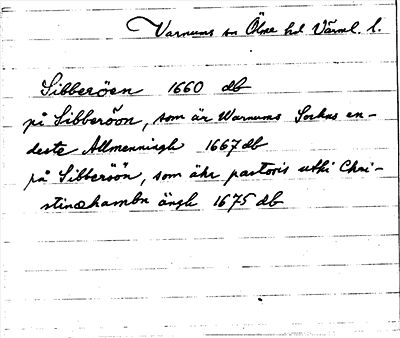 Varnums sn Ölme hd Värml. l.
Sibberöen 1660 db
på Sibberöön, som är Warnums Sochns en-
deste Allmenningh 1667 db
på Sibberöön, som ähr pastoris uthi Chri-
stinæhambn ängh 1675 db